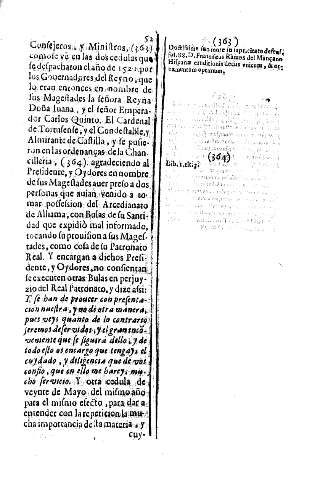 52
Consejeros, y Ministros, (363)
como se vè en las dos cedulas que
se despacharon el año de 1521. por
los Governadores del Reyno, que
lo eran entonces en nombre de
sus Magestades la señora Reyna
Doña Juana, y el señor Empera-
dor Carlos Quinto. El Cardenal
de Tortusense, y el Condestable, y
Almirante de Castilla, y se pusie-
ron en las ordenanças de la Chan-
cilleria, (364) agradeciendo al
Presidente, y Oydores en nombre
de sus Magestades aver preso a dos
personas que auian venido a to-
mar possession del Arcedianato
de Alhama, con Bulas de su Santi-
dad que expidiò mal informado,
tocando su prouision a sus Mages-
tades, como cosa de su Patronato
Real. Y encargan a dichos Presi-
dente, y Oydores, no consientan
se executen otras Bulas en perjuy-
zio del Real Patronato, y dize assi:
Y se han de proueer con presenta-
cion nuestra, y no de otra manera,
pues veys quanto de lo contrario
seremos deseruidos, y el gran incō-
veniente que se siguirà dello, y de
todo esto os encargo que tengays el
cuydado, y diligencia que de vos
confio, que en ello me hareys mu-
cho seruicio. Y otra cedula de
veynte de Mayo del mismo año
para el mismo efecto, para dar a
entender con la repeticion la mu-
cha importancia desta materia, y
cuy-
(363)
D. Franciscus Ramos del Mançano
(364)
Lib. 1.